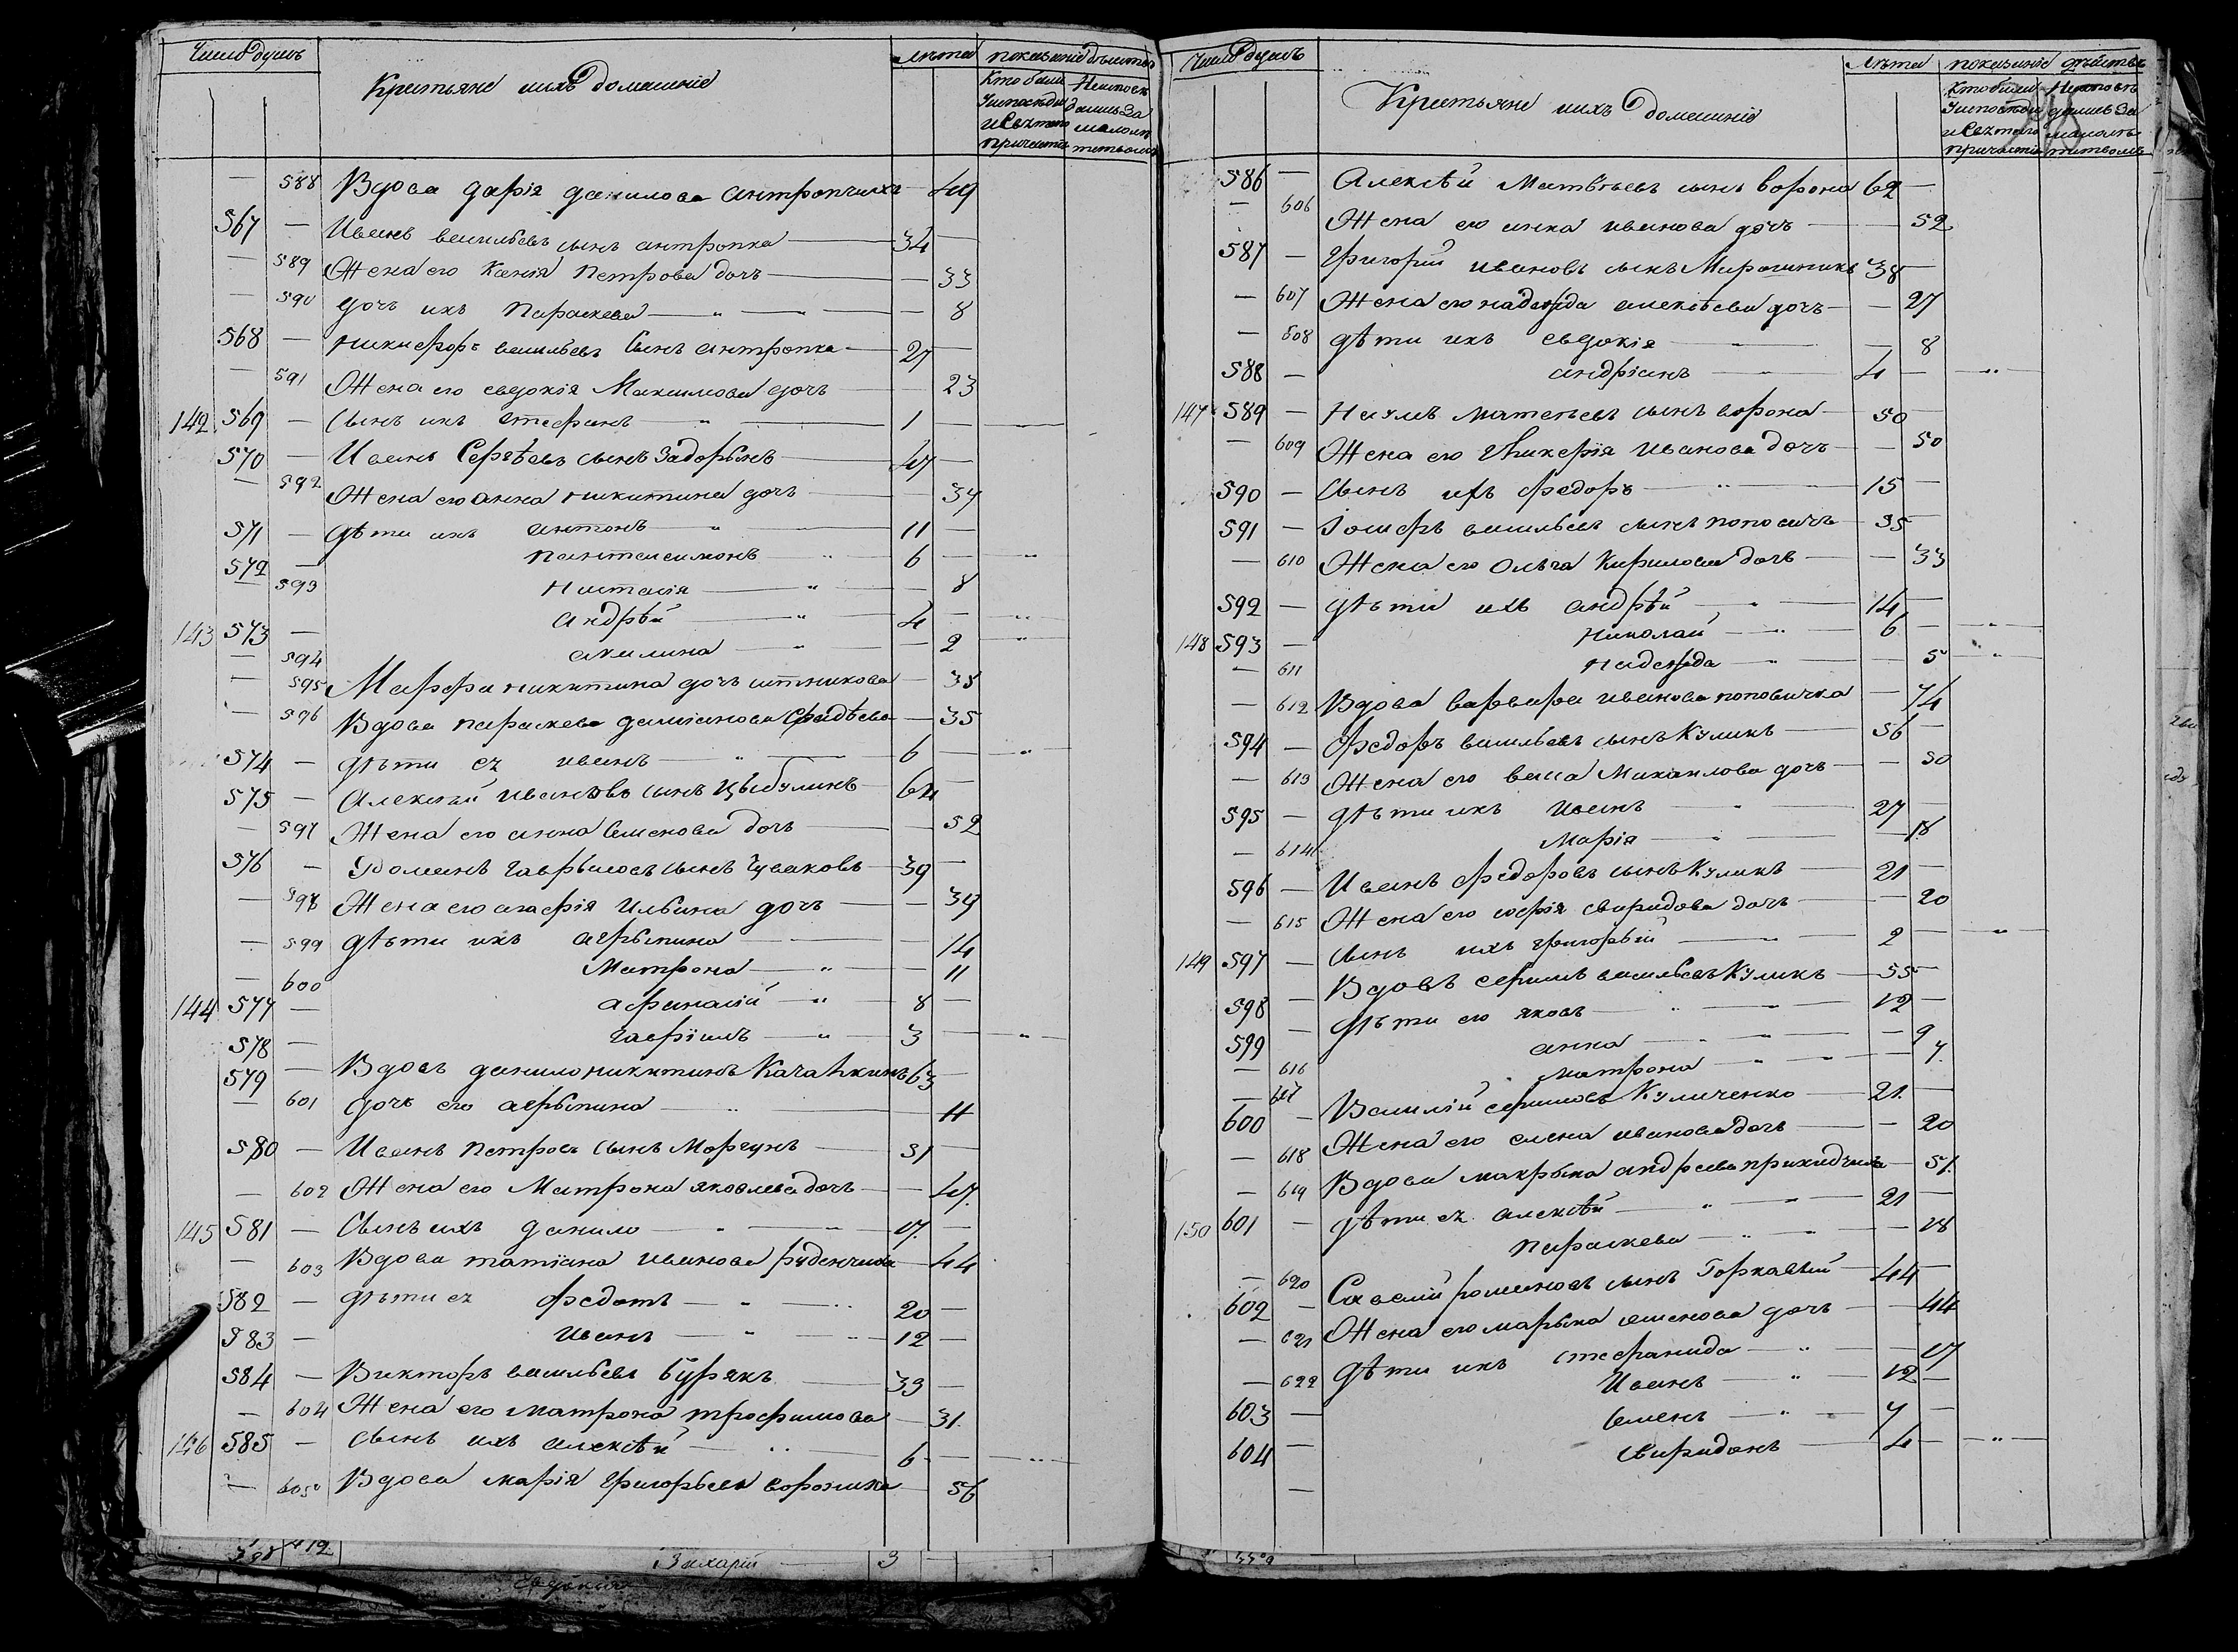 Число душъ
Крестьяне ихъ домашніе
лѣта показаніе дѣйства
Кто были Неиспов
Уисповѣди дались За
и Святого малолѣ
причастія тствомъ
— 588 Вдова дарія данилова антропчиха — 49
567 — Иванъ васильевъ сынъ антропка — 34 —
— 589 Жена его Ксенія Петрова дочь — 33
— 590 дочь ихъ Параскева — " — — 8
568 — никифоръ васильевъ Сынъ антропка — 27 —
— 591 Жена его евдокія Максимова дочь — 23
142 569 — Сынъ ихъ Стефанъ — " — 1 —
570 — Иванъ Сергѣевъ сынъ Задорынъ — 47 —
— 592 Жена его анна никитина дочь — 37
571 — дѣти ихъ антонъ — " — 11 —
572 — пантелеимонъ — " — 6 — "
— 593 Наталія — " — — 8
143 573 — Андрѣй — " — 4 — "
— 594 акилина — " — — 2 "
— 595 Марфа никитина дочь — 35
— 596 Вдова параскева даміанова Фадѣева — 35
574 — дѣти ея иванъ — " — 6 — "
575 — Алексѣй Ивановъ сынъ Цыбулинъ — 64 —
— 597 Жена его анна Семенова дочь — 52
576 — Романъ гаврыловъ сынъ Чуваковъ — 39 —
— 598 Жена его агафія Ильина дочь — 37
— 599 дѣти ихъ агрыпина — 14
— 600 Матрона — " — — 11
144 577 — афанасій — " — 8 —
578 — гавріилъ — " — 3 — "
579 — Вдовъ данило никитинъ 63 —
— 601 дочь его агрыпина — " — 11
580 — Иванъ Петровъ сынъ Моргунъ — 51 —
— 602 Жена его Матрона яковлева дочь — 47.
145 581 — Сынъ ихъ данило — " — 17. —
— 603 Вдова татіана Иванова руденчиха — 44
582 — дѣти ея Федотъ — " — 20 —
583 — Иванъ — " — 12 —
584 — Викторъ васильевъ Бурякъ — 33 —
— 604 Жена его матрона трофимова — 31.
146 585 — Сынъ ихъ алексѣй — " — 6 — "
— 605 Вдова марія григорьева воронина — 56
412
Захарій — 3
Евдокія
Число душъ
Крестьяне ихъ домашніе
лѣта показаніе дѣйства
Кто были Неисповѣ
Уисповѣди дались За
и Святого малолѣ
причастія тствомъ
586 — Алексѣй Матвѣевъ сынъ ворона 62 —
— 606 Жена его анна иванова дочь — 52
587 — Григорій ивановъ сынъ Мирошникъ 38 —
— 607 Жена его надежда алексѣева дочь — 27
— 608 дѣти ихъ евдокія — 8
588 — андріанъ — 4 — "
147 589 — Наумъ матвѣевъ сынъ ворона — 50
— 609 Жена его Гликерія Иванова дочь — 50
590 — Сынъ ихъ федоръ — " — 15 —
591 — Іосифъ васильевъ сынъ поповичъ — 35 —
— 610 Жена его Ольга Кирилова дочь — 33
592 — дѣти ихъ андрѣй — " — 14 —
148 593 — николай — " — 6 — "
— 611 надежда — " — — 5 "
— 612 Вдова варвара иванова поповичка — 74
594 — Федоръ васильевъ сынъ Куликъ — 56 —
— 613 Жена его васса Михаилова дочь — 50
595 — дѣти ихъ иванъ — " — 27 —
— 614 Марія — " — — 18.
596 — Иванъ федоровъ сынъ Куликъ — 21 —
— 615 Жена его софія свиридова дочь — 20
149 597 — Сынъ ихъ григорый — " — 2 — "
598 — Вдовъ ефимъ васильевъ Куликъ — 55 —
599 — дѣти его яковъ — " — 12 —
— 616 анна — " — — 9
— 617 матрона — " — — 7.
600 — Василій ефимовъ Куличенко — 21. —
— 618 Жена его елена иванова дочь — 20
— 619 Вдова макрына андреева приходчиха — 51.
150 601 — дѣти ея алексѣй — " — 21 —
— 620 параскева — " — — 18
602 — Савелій романовъ сынъ Горкавый — 44 —
— 621 Жена его марына семенова дочь — 44
— 622 дѣти ихъ стефанида — " — — 17
603 — Иванъ — " — 12 —
604 — Семенъ — " — 7 —
— свиридонъ — 4 — "